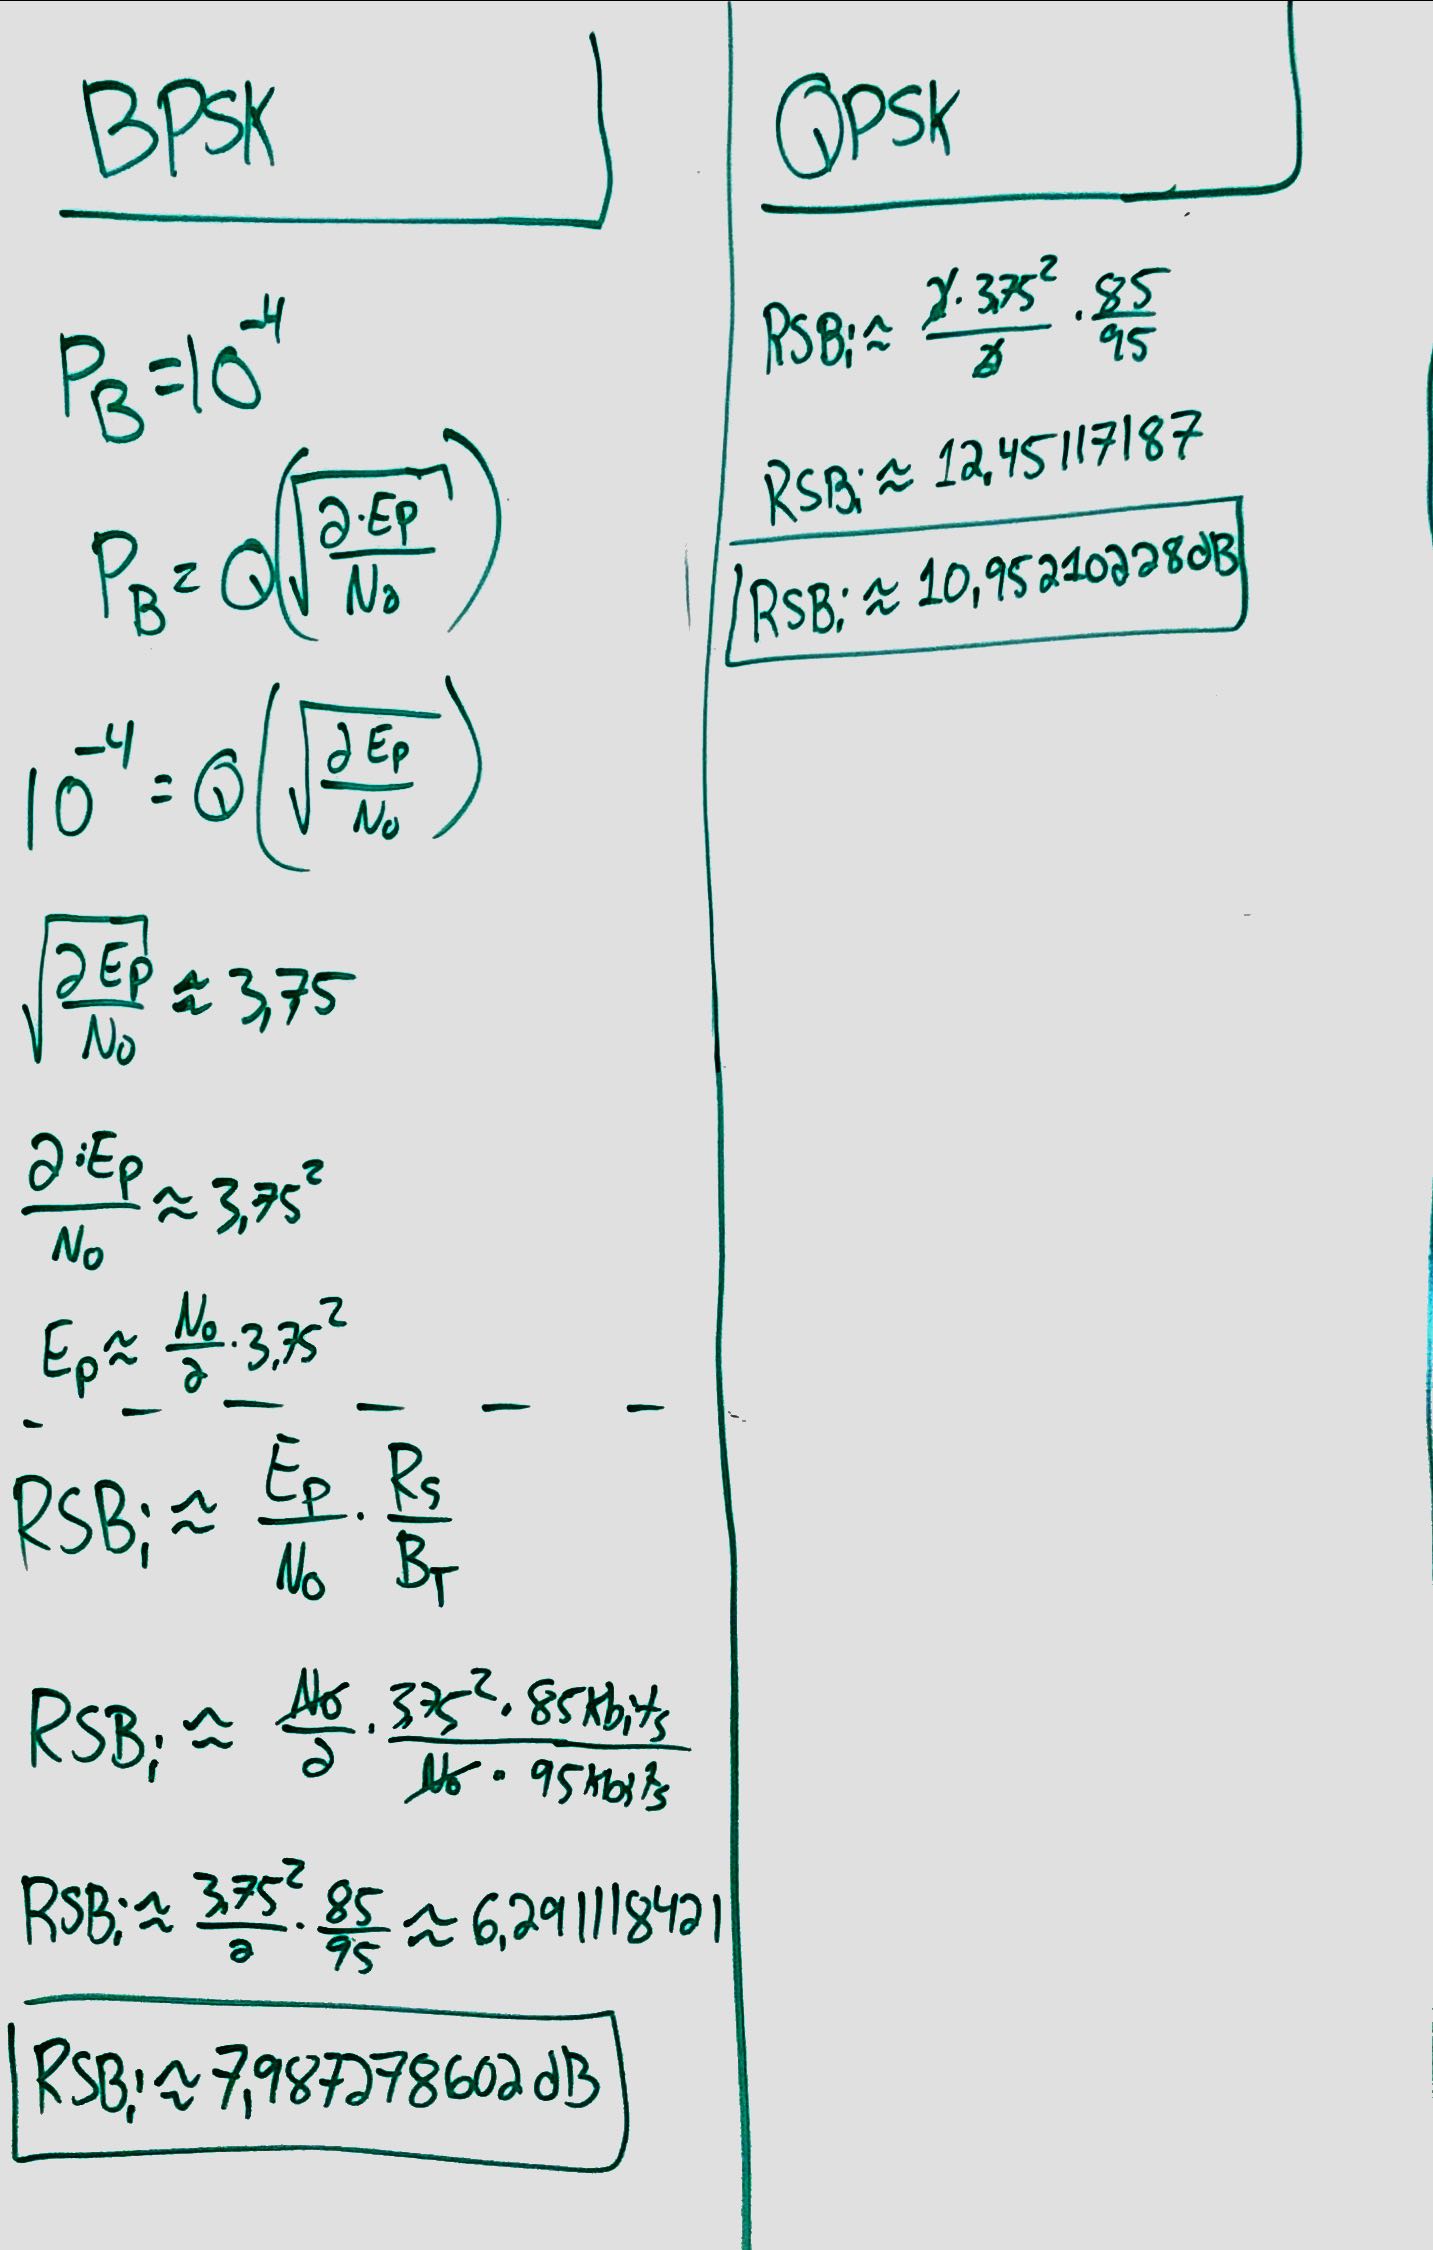 BPSK
P_B = 10^-4
P_B = Q(√(2·Ep/No))
10^-4 = Q(√(2Ep/No))
√(2Ep/No) ≈ 3,75
2·Ep/No ≈ 3,75²
Ep ≈ No/2 · 3,75²
RSBi ≈ Ep/No · Rs/B_T
RSBi ≈ No/2 · 3,75² · 85kbit/s / No · 95kbit/s
RSBi ≈ 3,75²/2 · 85/95 ≈ 6,291118421
RSBi ≈ 7,987278602dB
QPSK
RSBi ≈ 2·3,75²/2 · 85/95
RSBi ≈ 12,45117187
RSBi ≈ 10,95210228dB